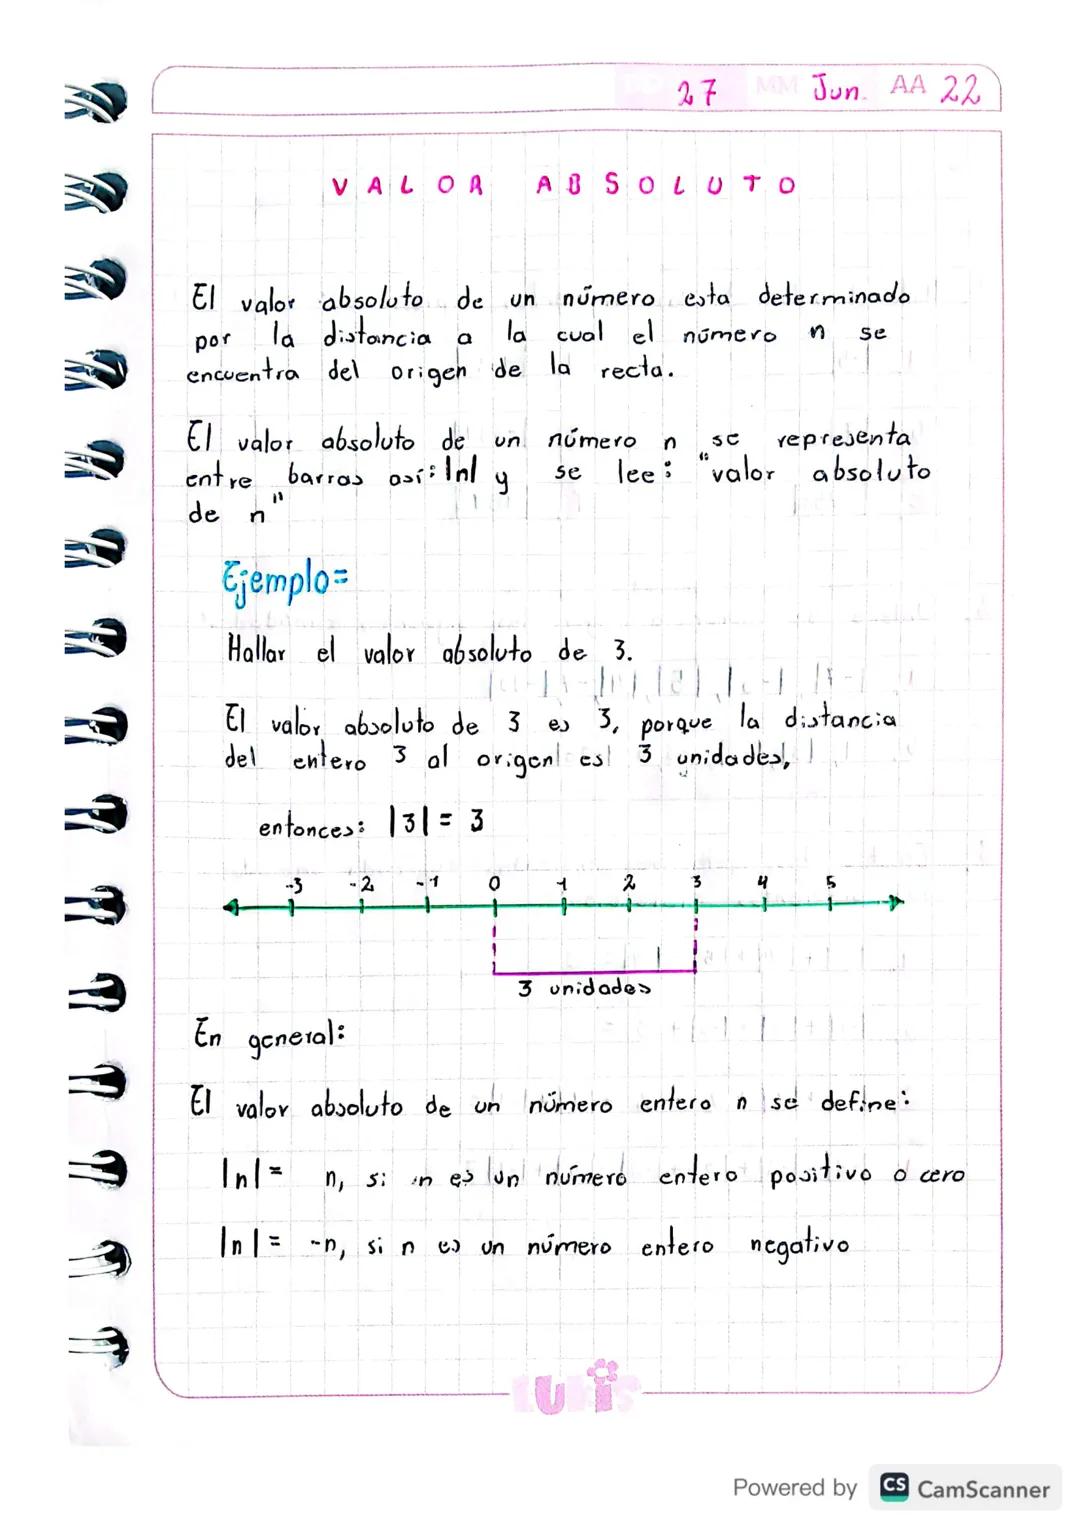 27 MM Jun. AA 22
VALOR ABSOLUTO
El valor absoluto de un número esta determinado
por la distancia a la cual el número n se
encuentra del origen de la recta.
El valor absoluto de un número n se representa
entre barras así: |n| y se lee: "valor absoluto
de n"
Ejemplo=
Hallar el valor absoluto de 3.
El valor absoluto de 3 es 3, porque la distancia
del entero 3 al origen es 3 unidades,
entonces: |3| = 3
-3 -2 -1 0 1 2 3 4 5
3 unidades
En general:
El valor absoluto de un número entero n se define:
|n| = n, si n es un número entero positivo o cero
|n| = -n, si n es un número entero negativo
Powered by CS CamScanner